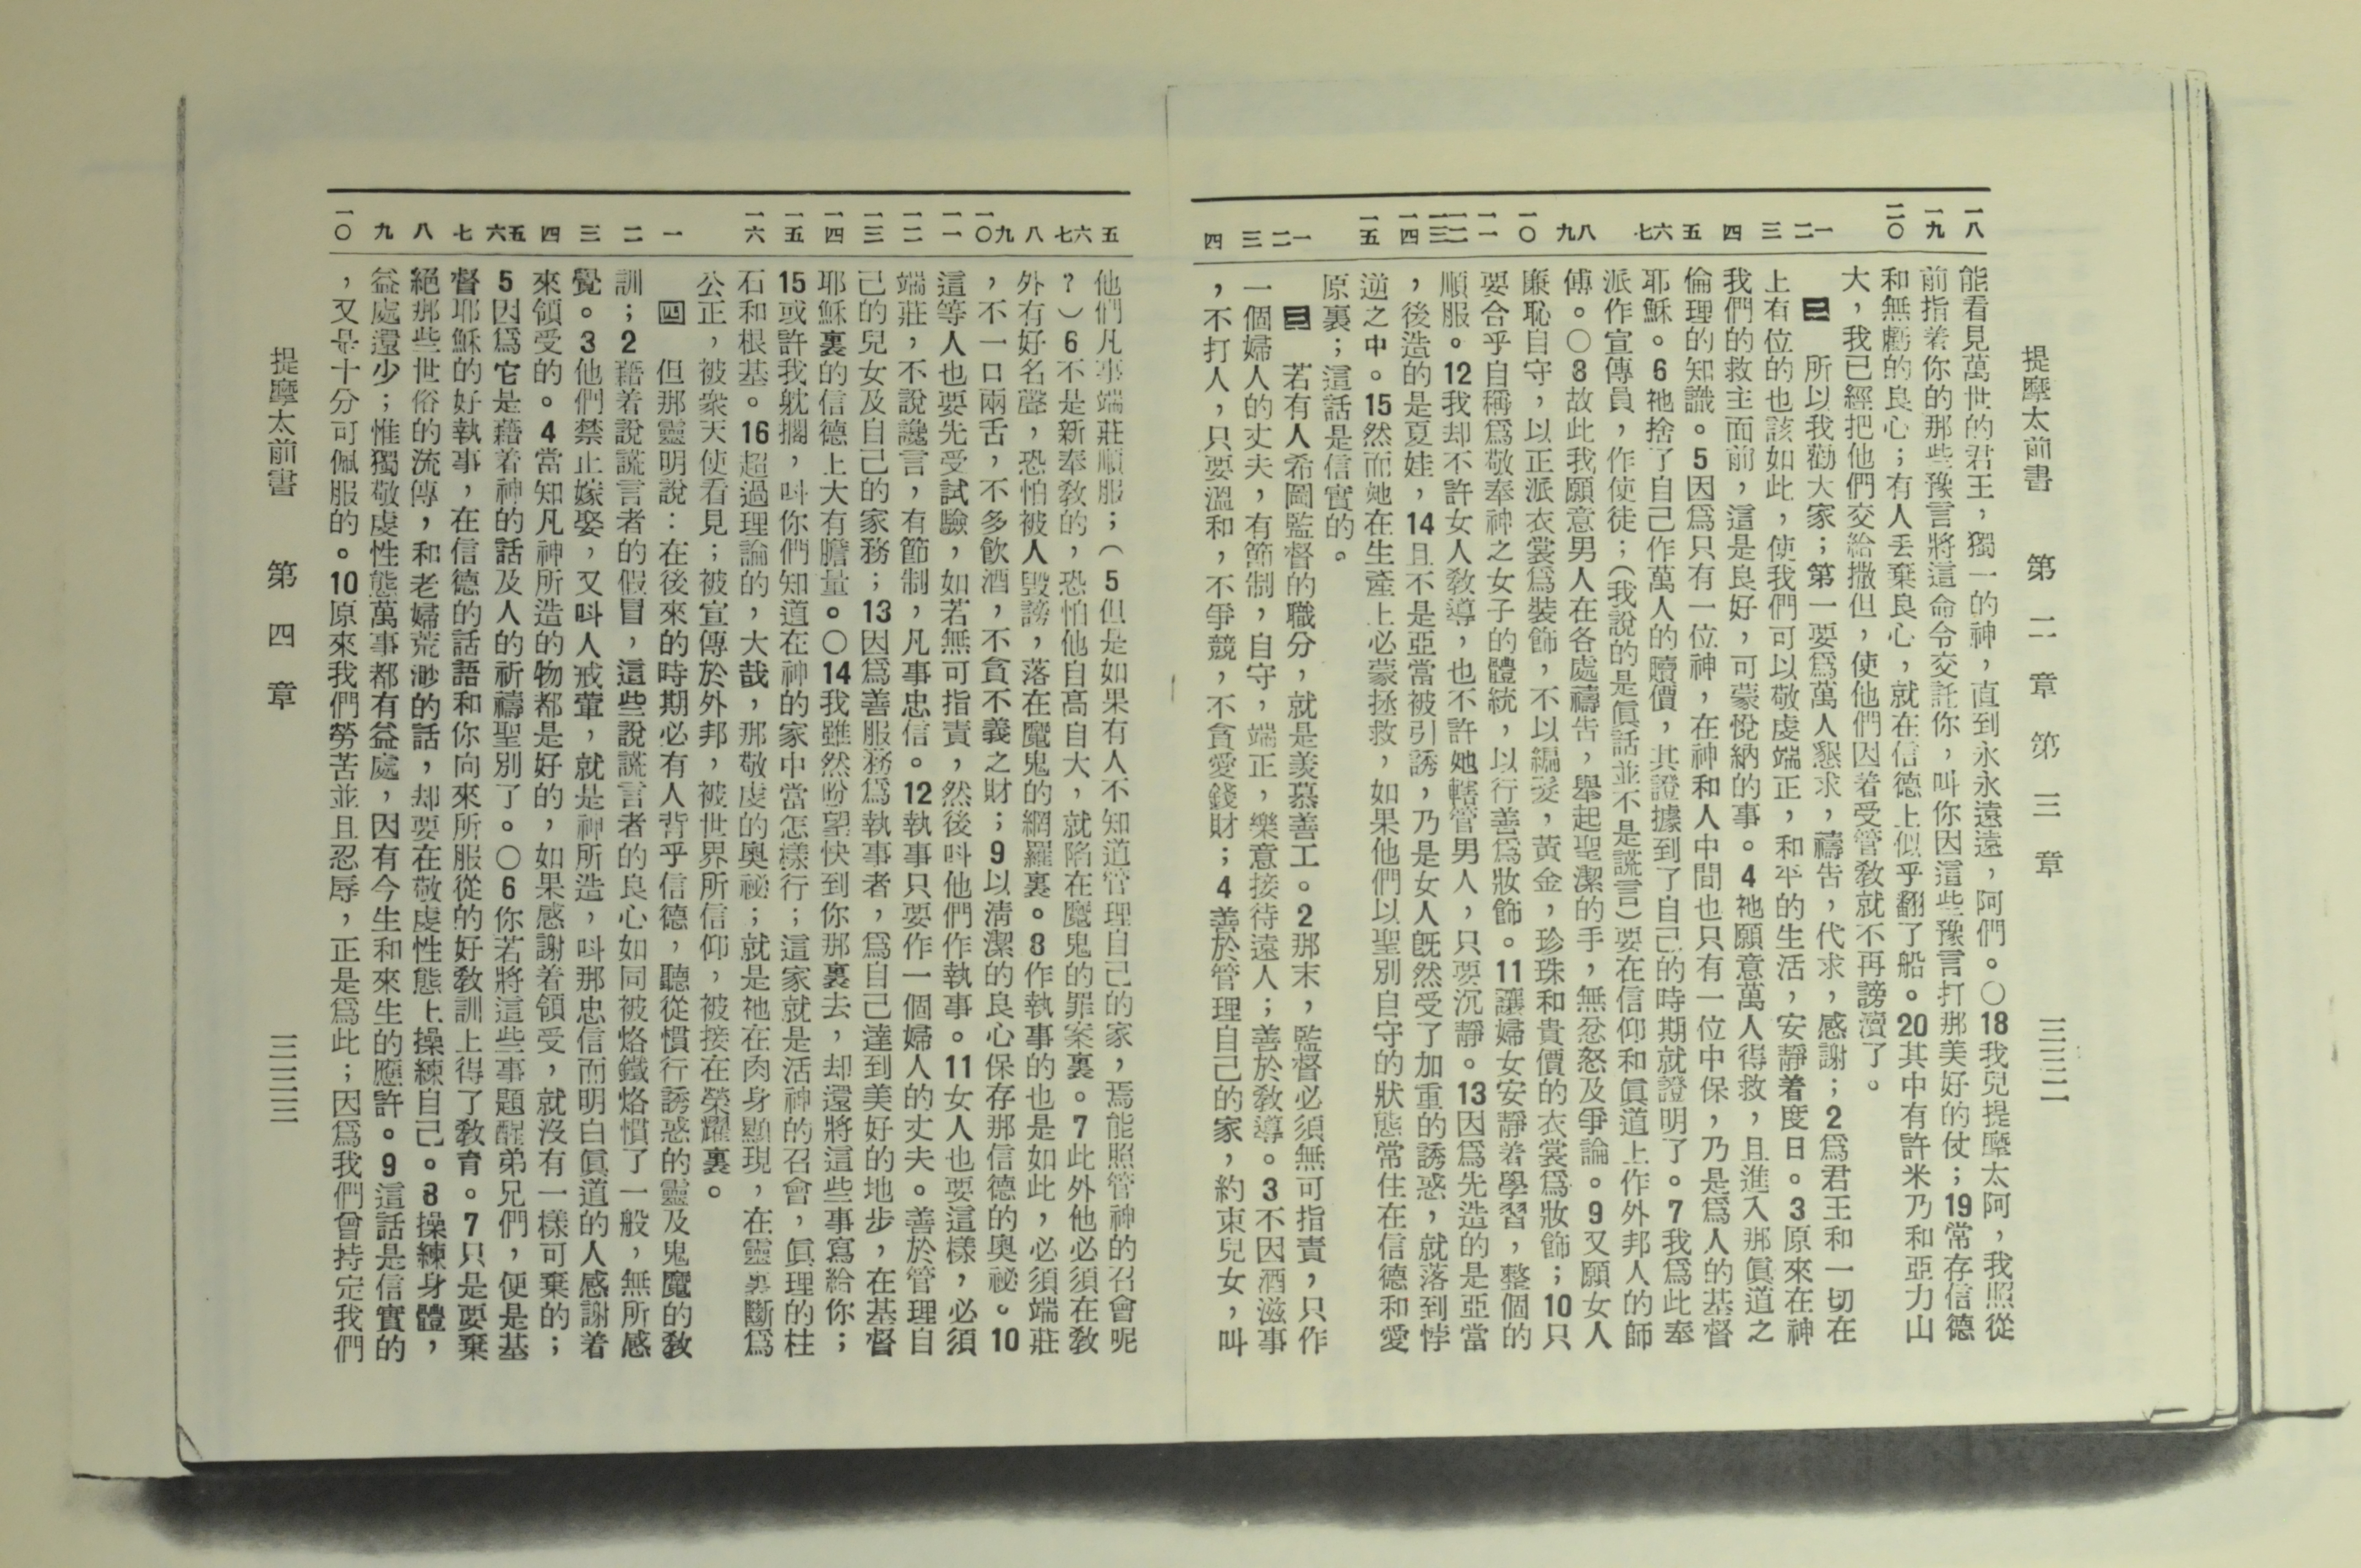 提摩太前書　第二章　第三章　三三二
一八　一九　二〇　一　二　三　四　五　六　七　八　九　一〇　一一　一二　一三　一四　一五　一　二　三　四
能看見萬世的君王，獨一的神，直到永永遠遠，阿們。〇18我兒提摩太阿，我照從
前指着你的那些豫言將這命令交託你，叫你因這些豫言打那美好的仗；19常存信德
和無虧的良心；有人丟棄良心，就在信德上似乎翻了船。20其中有許米乃和亞力山
大，我已經把他們交給撒但，使他們因着受管敎就不再謗瀆了。
二　所以我勸大家；第一要爲萬人懇求，禱告，代求，感謝；2爲君王和一切在
上有位的也該如此，使我們可以敬虔端正，和平的生活，安靜着度日。3原來在神
我們的救主面前，這是良好，可蒙悅納的事。4祂願意萬人得救，且進入那眞道之
倫理的知識。5因爲只有一位神，在神和人中間也只有一位中保，乃是爲人的基督
耶穌。6祂捨了自己作萬人的贖價，其證據到了自己的時期就證明了。7我爲此奉
派作宣傳員，作使徒；（我說的是眞話並不是謊言）要在信仰和眞道上作外邦人的師
傅。〇8故此我願意男人在各處禱告，舉起聖潔的手，無忿怒及爭論。9又願女人
廉恥自守，以正派衣裳爲裝飾，不以編髮，黃金，珍珠和貴價的衣裳爲妝飾；10只
要合乎自稱爲敬奉神之女子的體統，以行善爲妝飾。11讓婦女安靜着學習，整個的
順服。12我却不許女人敎導，也不許她轄管男人，只要沉靜。13因爲先造的是亞當
，後造的是夏娃，14且不是亞當被引誘，乃是女人旣然受了加重的誘惑，就落到悖
逆之中。15然而她在生產上必蒙拯救，如果他們以聖別自守的狀態常住在信德和愛
原裏；這話是信實的。
三　若有人希圖監督的職分，就是羨慕善工。2那末，監督必須無可指責，只作
一個婦人的丈夫，有節制，自守，端正，樂意接待遠人；善於敎導。3不因酒滋事
，不打人，只要溫和，不爭競，不貪愛錢財；4善於管理自己的家，約束兒女，叫
五　六　七　八　九　一〇　一一　一二　一三　一四　一五　一六　一　二　三　四　五　六　七　八　九　一〇
他們凡事端莊順服；（5但是如果有人不知道管理自己的家，焉能照管神的召會呢
？）6不是新奉敎的，恐怕他自高自大，就陷在魔鬼的罪案裏。7此外他必須在敎
外有好名聲，恐怕被人毀謗，落在魔鬼的網羅裏。8作執事的也是如此，必須端莊
，不一口兩舌，不多飲酒，不貪不義之財；9以淸潔的良心保存那信德的奧祕。10
這等人也要先受試驗，如若無可指責，然後叫他們作執事。11女人也要這樣，必須
端莊，不說讒言，有節制，凡事忠信。12執事只要作一個婦人的丈夫。善於管理自
己的兒女及自己的家務；13因爲善服務爲執事者，爲自己達到美好的地步，在基督
耶穌裏的信德上大有膽量。〇14我雖然盼望快到你那裏去，却還將這些事寫給你；
15或許我躭擱，叫你們知道在神的家中當怎樣行；這家就是活神的召會，眞理的柱
石和根基。16超過理論的，大哉，那敬虔的奧祕；就是祂在肉身顯現，在靈裏斷爲
公正，被衆天使看見；被宣傳於外邦，被世界所信仰，被接在榮耀裏。
四　但那靈明說：在後來的時期必有人背乎信德，聽從慣行誘惑的靈及鬼魔的敎
訓；2藉着說謊言者的假冒，這些說謊言者的良心如同被烙鐵烙慣了一般，無所感
覺。3他們禁止嫁娶，又叫人戒葷，就是神所造，叫那忠信而明白眞道的人感謝着
來領受的。4當知凡神所造的物都是好的，如果感謝着領受，就沒有一樣可棄的；
5因爲它是藉着神的話及人的祈禱聖別了。〇6你若將這些事題醒弟兄們，便是基
督耶穌的好執事，在信德的話語和你向來所服從的好敎訓上得了敎育。7只是要棄
絕那些世俗的流傳，和老婦荒渺的話，却要在敬虔性態上操練自己。8操練身體，
益處還少；惟獨敬虔性態萬事都有益處，因有今生和來生的應許。9這話是信實的
，又是十分可佩服的。10原來我們勞苦並且忍辱，正是爲此；因爲我們曾持定我們
提摩太前書　第四章　三三三